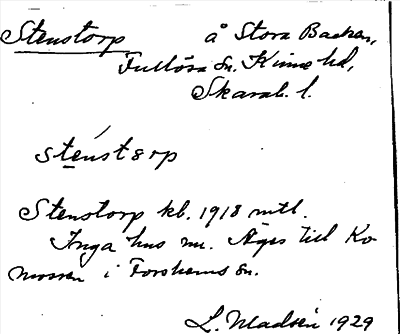 Stenstorp å Stora Backen,
Fullösa Sn. Kinne hd,
Skarab. l.
sté̱nstɵrp
Stenstorp kb. 1918 mtl.
Inga hus nu. Äges till Ko
mossen i Forshems Sn.
L. Madsén 1929